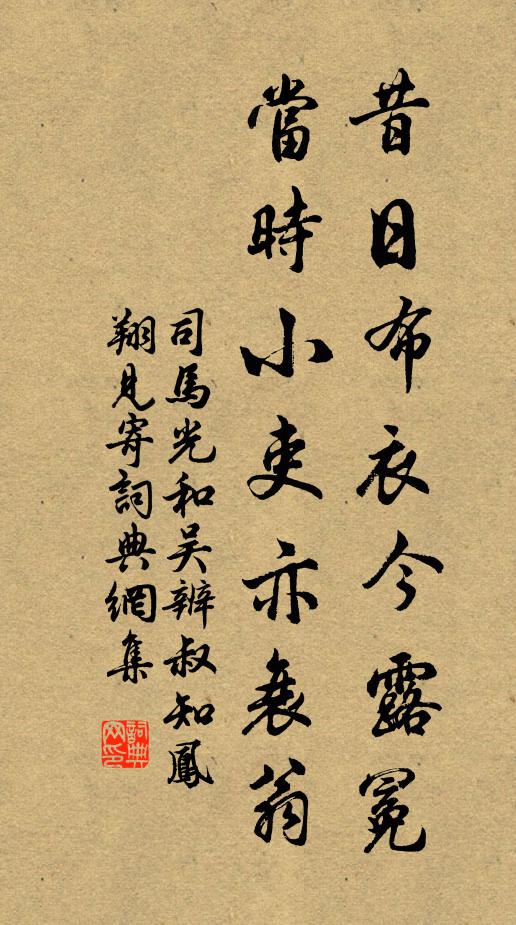 昔日布衣今露冕
當時小吏亦衰翁
司馬光和吳辨叔知鳳
翔見寄詞典網集
詞典网印